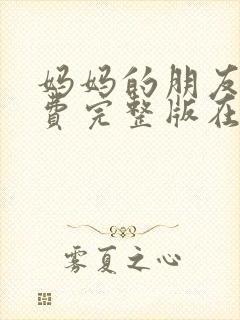 妈妈的朋友
费完整版在
雾夏之心